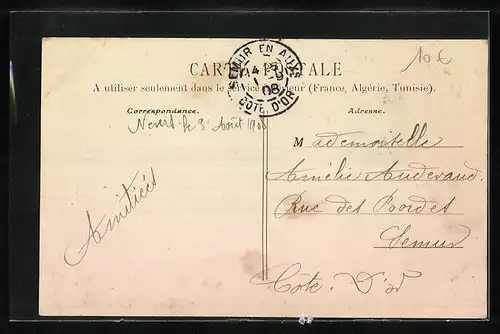 10 €
CARTE POSTALE
A utiliser seulement dans le service intérieur (France, Algérie, Tunisie).
SEMUR EN AUXS
COTE D'OR
08
Correspondance.
Adresse.
le 31 Août 1908
Amitiés
Mademoiselle
Amélie Auderand
Rue des Bordes
Semur
Côte-D'or